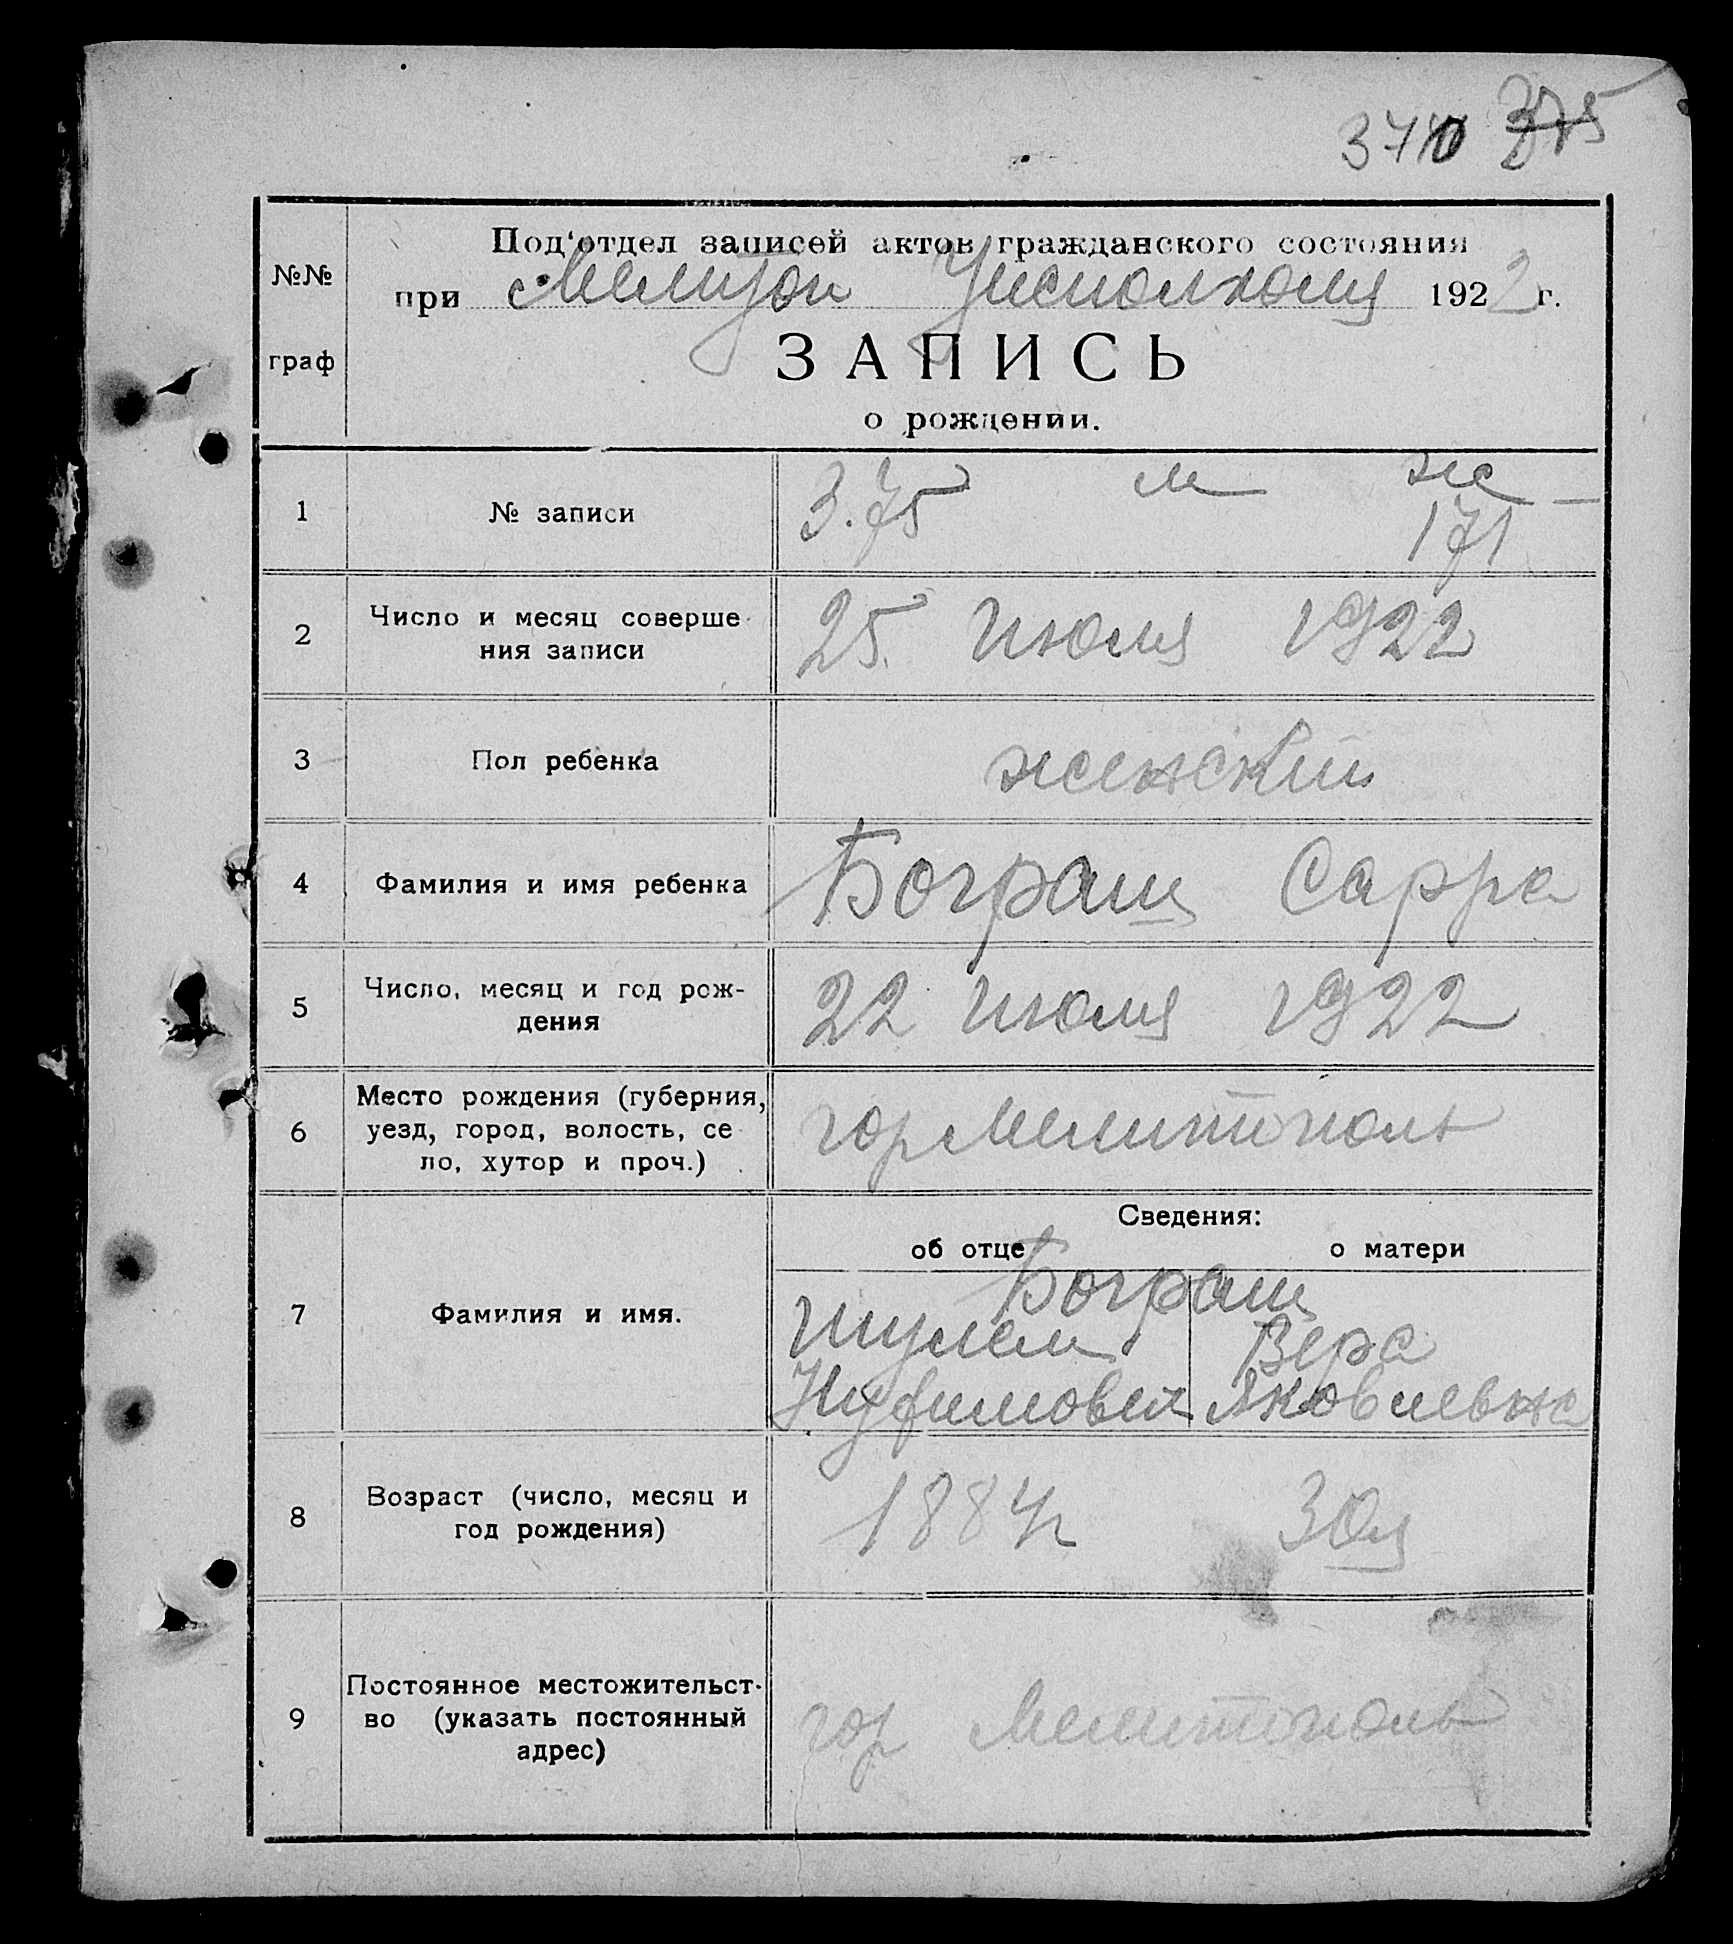 370 375
№№
граф
Под'отдел записей актов гражданского состояния
при Мелитоп Уисполкому 1922 г.
ЗАПИСЬ
о рождении.
1 № записи 375 м ж
171
2 Число и месяц соверше-
ния записи 25 Июля 1922
3 Пол ребенка женский
4 Фамилия и имя ребенка Бограш Сарра
5 Число, месяц и год рож-
дения 22 Июля 1922
6 Место рождения (губерния,
уезд, город, волость, се
ло, хутор и проч.) гор Мелитополь
Сведения:
об отце о матери
7 Фамилия и имя. Бограш
Шулем Вера
Яковлевна
8 Возраст (число, месяц и
год рождения) 1884г 30л
9 Постоянное местожительст-
во (указать постоянный
адрес) гор Мелитополь